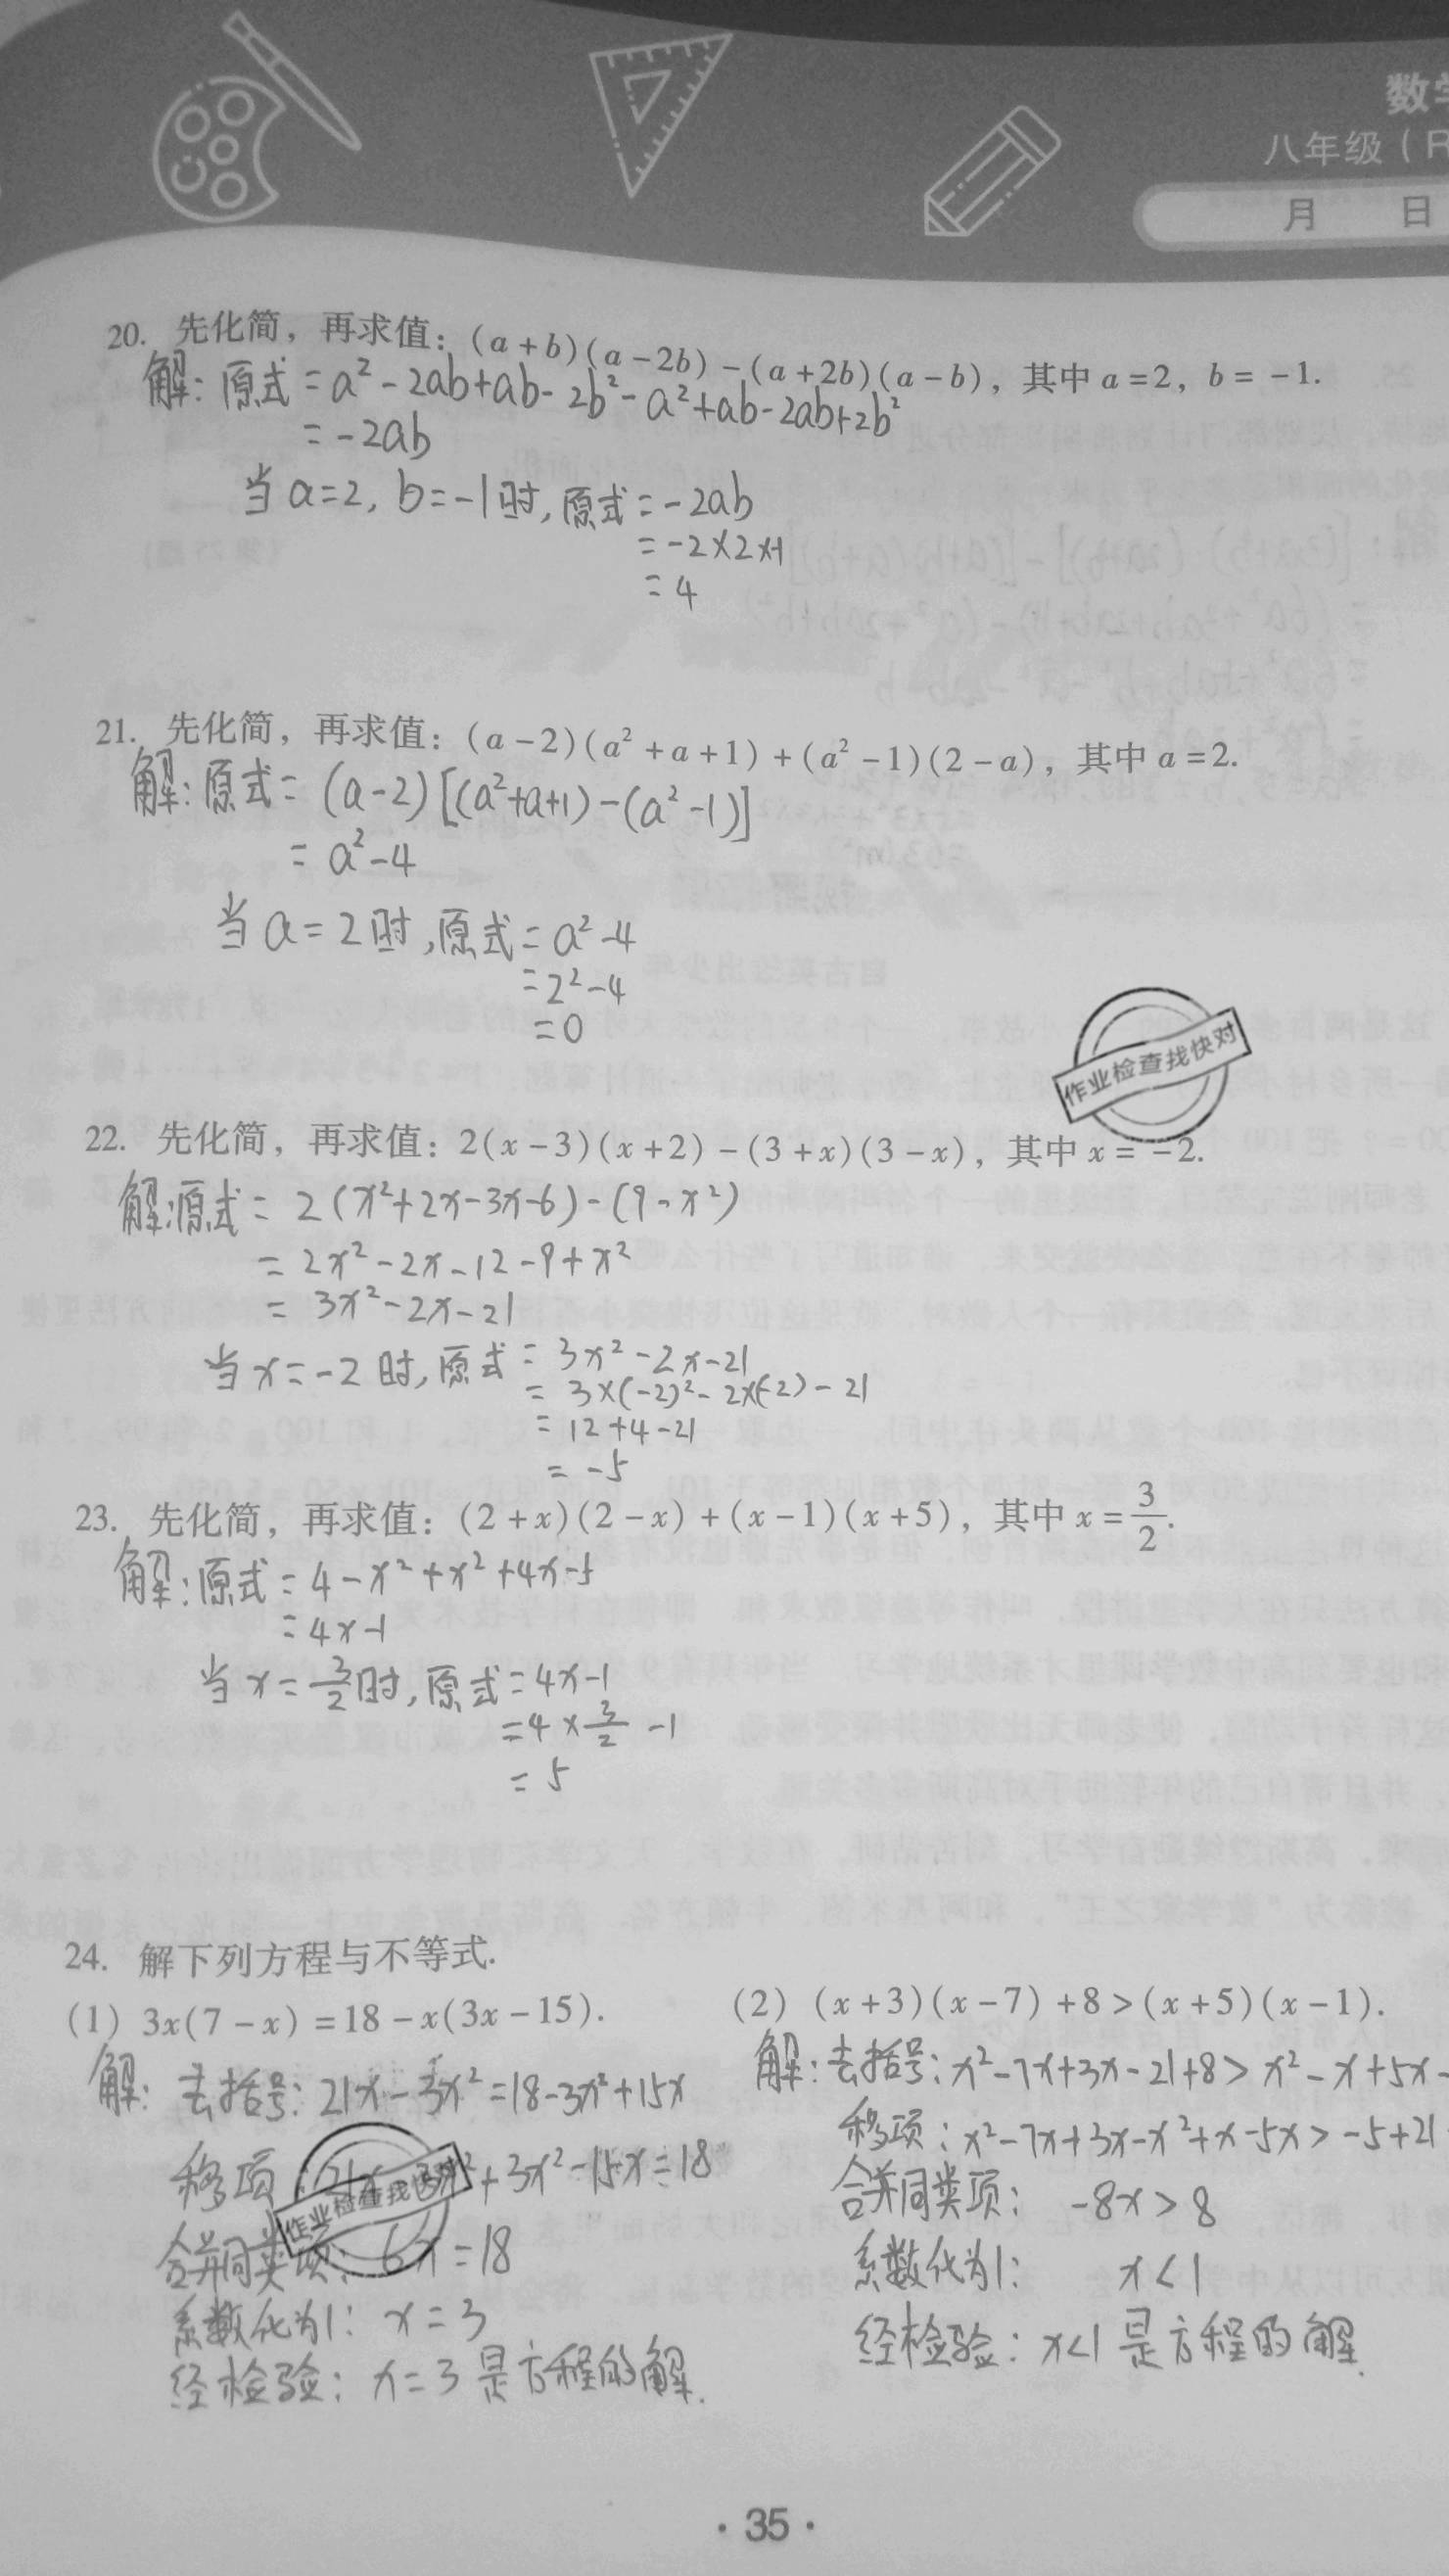 数学
八年级（R
月 日
20. 先化简，再求值：(a+b)(a-2b)-(a+2b)(a-b)，其中 a=2，b=-1.
解：原式=a²-2ab+ab-2b²-a²+ab-2ab+2b²
=-2ab
当a=2，b=-1时，原式=-2ab
=-2×2×-1
=4
21. 先化简，再求值：(a-2)(a²+a+1)+(a²-1)(2-a)，其中 a=2.
解：原式=(a-2)[(a²+a+1)-(a²-1)]
=a²-4
当a=2时，原式=a²-4
=2²-4
=0
作业检查找快对
22. 先化简，再求值：2(x-3)(x+2)-(3+x)(3-x)，其中 x=-2.
解：原式=2(x²+2x-3x-6)-(9-x²)
=2x²-2x-12-9+x²
=3x²-2x-21
当x=-2时，原式=3x²-2x-21
=3×(-2)²-2×(-2)-21
=12+4-21
=-5
23. 先化简，再求值：(2+x)(2-x)+(x-1)(x+5)，其中 x=3/2.
解：原式=4-x²+x²+4x-5
=4x-1
当x=3/2时，原式=4x-1
=4×3/2-1
=5
24. 解下列方程与不等式.
(1) 3x(7-x)=18-x(3x-15).
解：去括号：21x-3x²=18-3x²+15x
移项：21x-3x²+3x²-15x=18
作业检查找快对
合并同类项：6x=18
系数化为1：x=3
经检验：x=3是方程的解.
(2) (x+3)(x-7)+8>(x+5)(x-1).
解：去括号：x²-7x+3x-21+8>x²-x+5x-
移项：x²-7x+3x-x²+x-5x>-5+21
合并同类项：-8x>8
系数化为1：x<1
经检验：x<1是方程的解.
·35·